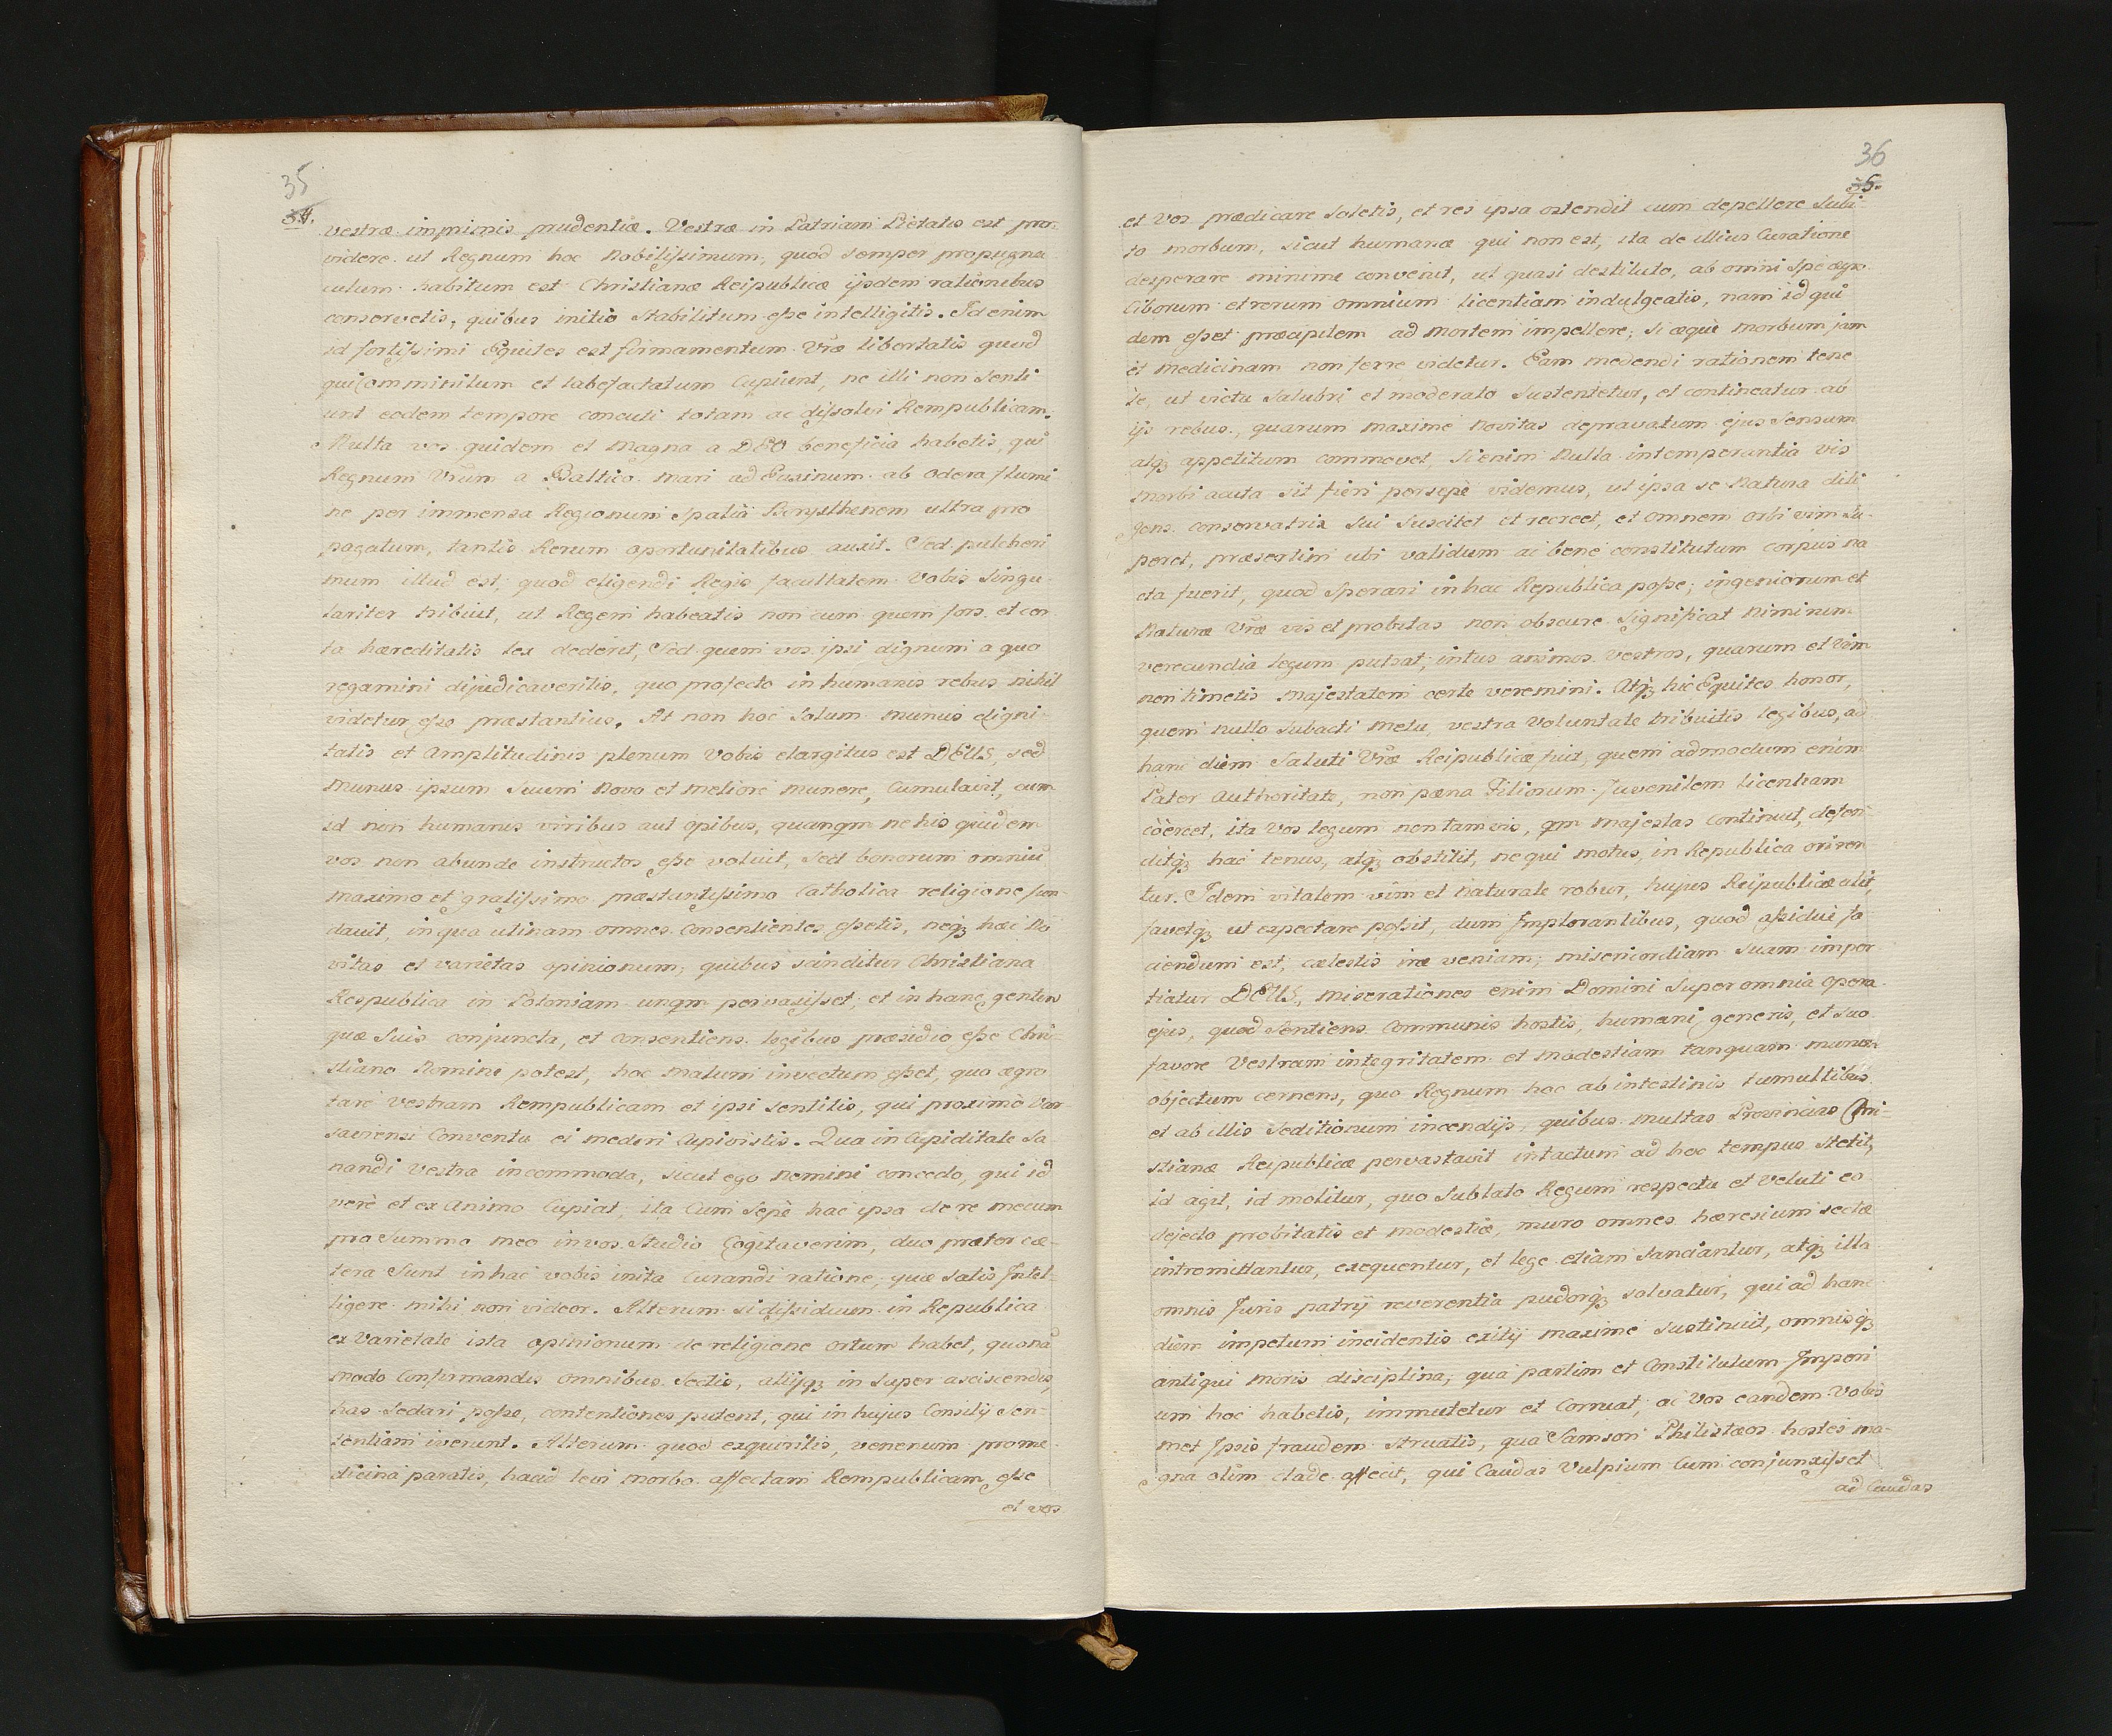 35
34.
vestræ imprimis prudentiæ. Vestræ in Patriam Pietatis est pro-
videre ut Regnum hoc Nobilissimum, quod semper propugna
culum habitum est Christianæ Reipublicæ ijsdem rationibus
conservetis, quibus initio Stabilitum esse intelligitis. Id enim
id fortissimi Equites est firmamentum Vræ libertatis quod
qui comminutum et labefactatum Cupiunt, ne illi non Senti
unt eodem tempore concuti totam ac dissolvi Rempublicam.
Multa vos quidem et Magna a DEO beneficia habetis, qui
Regnum Vrum a Baltico mari ad Euxinum ab Odera flumi
ne per immensa Regionum Spatia Borysthenem ultra pro
pagatum, tantis Rerum oportunitatibus auxit. Sed pulcheri
mum illud est, quod eligendi Regis facultatem Vobis Singu
lariter tribuit, ut Regem habeatis non cum quem fors et cer
ta hæreditatis lex dederit, Sed quem vos ipsi dignum a quo
regamini dijudicaveritis, quo profecto in humanis rebus nihil
videtur esse præstantius. At non hoc Solum munus digni
tatis et Amplitudinis plenum Vobis elargitus est DEUS, sed
Munus ipsum Suum Novo et meliore Munere, Cumulavit, cum
id non humanis viribus aut opibus, quanqm ne his quidem
vos non abunde instructos esse voluit, Sed bonorum omniū
maximo et gratissimo præstantissimo Catholica religione fun-
davit, in qua utinam omnes Consentientes essetis, neq₃ hæc No
vitas et varietas opinionum, quibus scinditur Christiana
Respublica in Poloniam unqm pervasisset, et in hanc gentem
quæ Suis conjuncta, et consentiens legibus præsidio esse Chri-
stiano Nomine potest, hoc malum invectum esset, quo ægro
tare Vestram Rempublicam et ipsi sentitis, qui proximo Var-
saviensi Conventu ei mederi Cupivistis. Qua in Cupiditate Sa
nandi Vestra incommoda, sicut ego nemini concedo, qui id
verè et ex Animo Cupiat, ita Cum Sępè hac ipsa de re mecum
pro Summo meo in vos Studio Cogitaverim, duo præter cæ-
tera Sunt in hac vobis inita Curandi ratione, quæ satis Intel-
ligere mihi non videor. Alterum si dissidium in Republica
ex Varietate ista opinionum de religione ortum habet, quonā
modo Confirmandis omnibus Sectis, alijsq₃ in Super asciscendis,
has Sedari posse, contentiones putent, qui in hujus Consilij Sen-
tentiam iverunt. Alterum quod exquiritis, venenum pro me
dicina paratis, haud levi morbo affectam Rempublicam esse
et vos
36
35.
et vos prædicare Soletis, et res ipsa ostendit cum depellere Subi-
to morbum, sicut humanæ qui non est, ita de illius Curatione
desperare minime convenit, ut quasi destituto, ab omni Spe ægro
Ciborum et rerum omnium licentiam indulgeatis, nam id qui
dem esset præcipitem ad mortem impellere; Si æquè morbum jam
et Medicinam non ferre videtur. Eam medendi rationem tene
te, ut victu Salubri et moderato Sustentetur, et contineatur ab
ijs rebus, quarum maxime Novitas depravatum ejus Sensum
atq₃ appetitum commovet, Si enim Nulla intemperantia vis
Morbi acuta sit fieri persępè videmus, ut ipsa se Natura dili
gens conservatrix Sui Suscitet et recreet, et omnem orbi vim Su-
peret, præsertim ubi validum ac bene constitutum corpus na
cta fuerit, quod Sperari in hac Republica posse; ingeniorum et
Naturæ Vræ vis et probitas non obscure Significat Nimirum
verecundia legum pulsat, intus animos vestros, quarum et Vim
non timetis Majestatem certe veremini. Atq₃ hic Equites honor,
quem nullo Subacti metu, vestra Voluntate tribuitis legibus, ad
hanc diem Saluti Vræ Reipublicæ fuit, quem admodum enim
Pater Authoritate, non pæna Filiorum Juvenilem licentiam
còercet, ita Vos legum non tam vis, qm Majestas Continuit, defen
ditq₃ hac tenus, atq₃ obstitit, ne qui motus, in Republica orirer
tur. Idem vitalem vim et Naturale robur, hujus Reipublicæ alit,
favetq₃ ut expectare possit, dum Implorantibus, quod assiduè fa
ciendum est, cælestis iræ veniam, misericordiam Suam imper
tiatur DEUS, miserationes enim Domini Super omnia opera
ejus, quod Sentiens Communis hostis, humani generis, et suo
favore Vestram integritatem et Modestiam tanquam murum
objectum cernens, quo Regnum hoc ab intestinis tumultibus
et ab illis Seditionum incendijs, quibus multas Provincias Chri-
stianæ Reipublicæ pervastavit intactum ad hoc tempus Stetit,
id agit, id molitur, quo Sublato Regum respectu et veluti eo
dejecto probitatis et modestiæ, muro omnes hæresium sectæ
intromittantur, exequentur, et lege etiam Sanciantur, atq₃ illa
omnis Juris patrij reverentia pudorq₃ solvatur, qui ad hanc
diem impetum incidentis exitij maxime Sustinuit, omnisq₃
antiqui moris disciplina, qua partim et Constitutum Imperi
um hoc habetis, immutetur et Corruat, ac Vos eandem Vobis
met Ipsis fraudem Struatis, qua Samson Philistæos hostes ma-
gna olim clade affecit, qui Caudas Vulpium Cum conjunxisset
ad Caudas